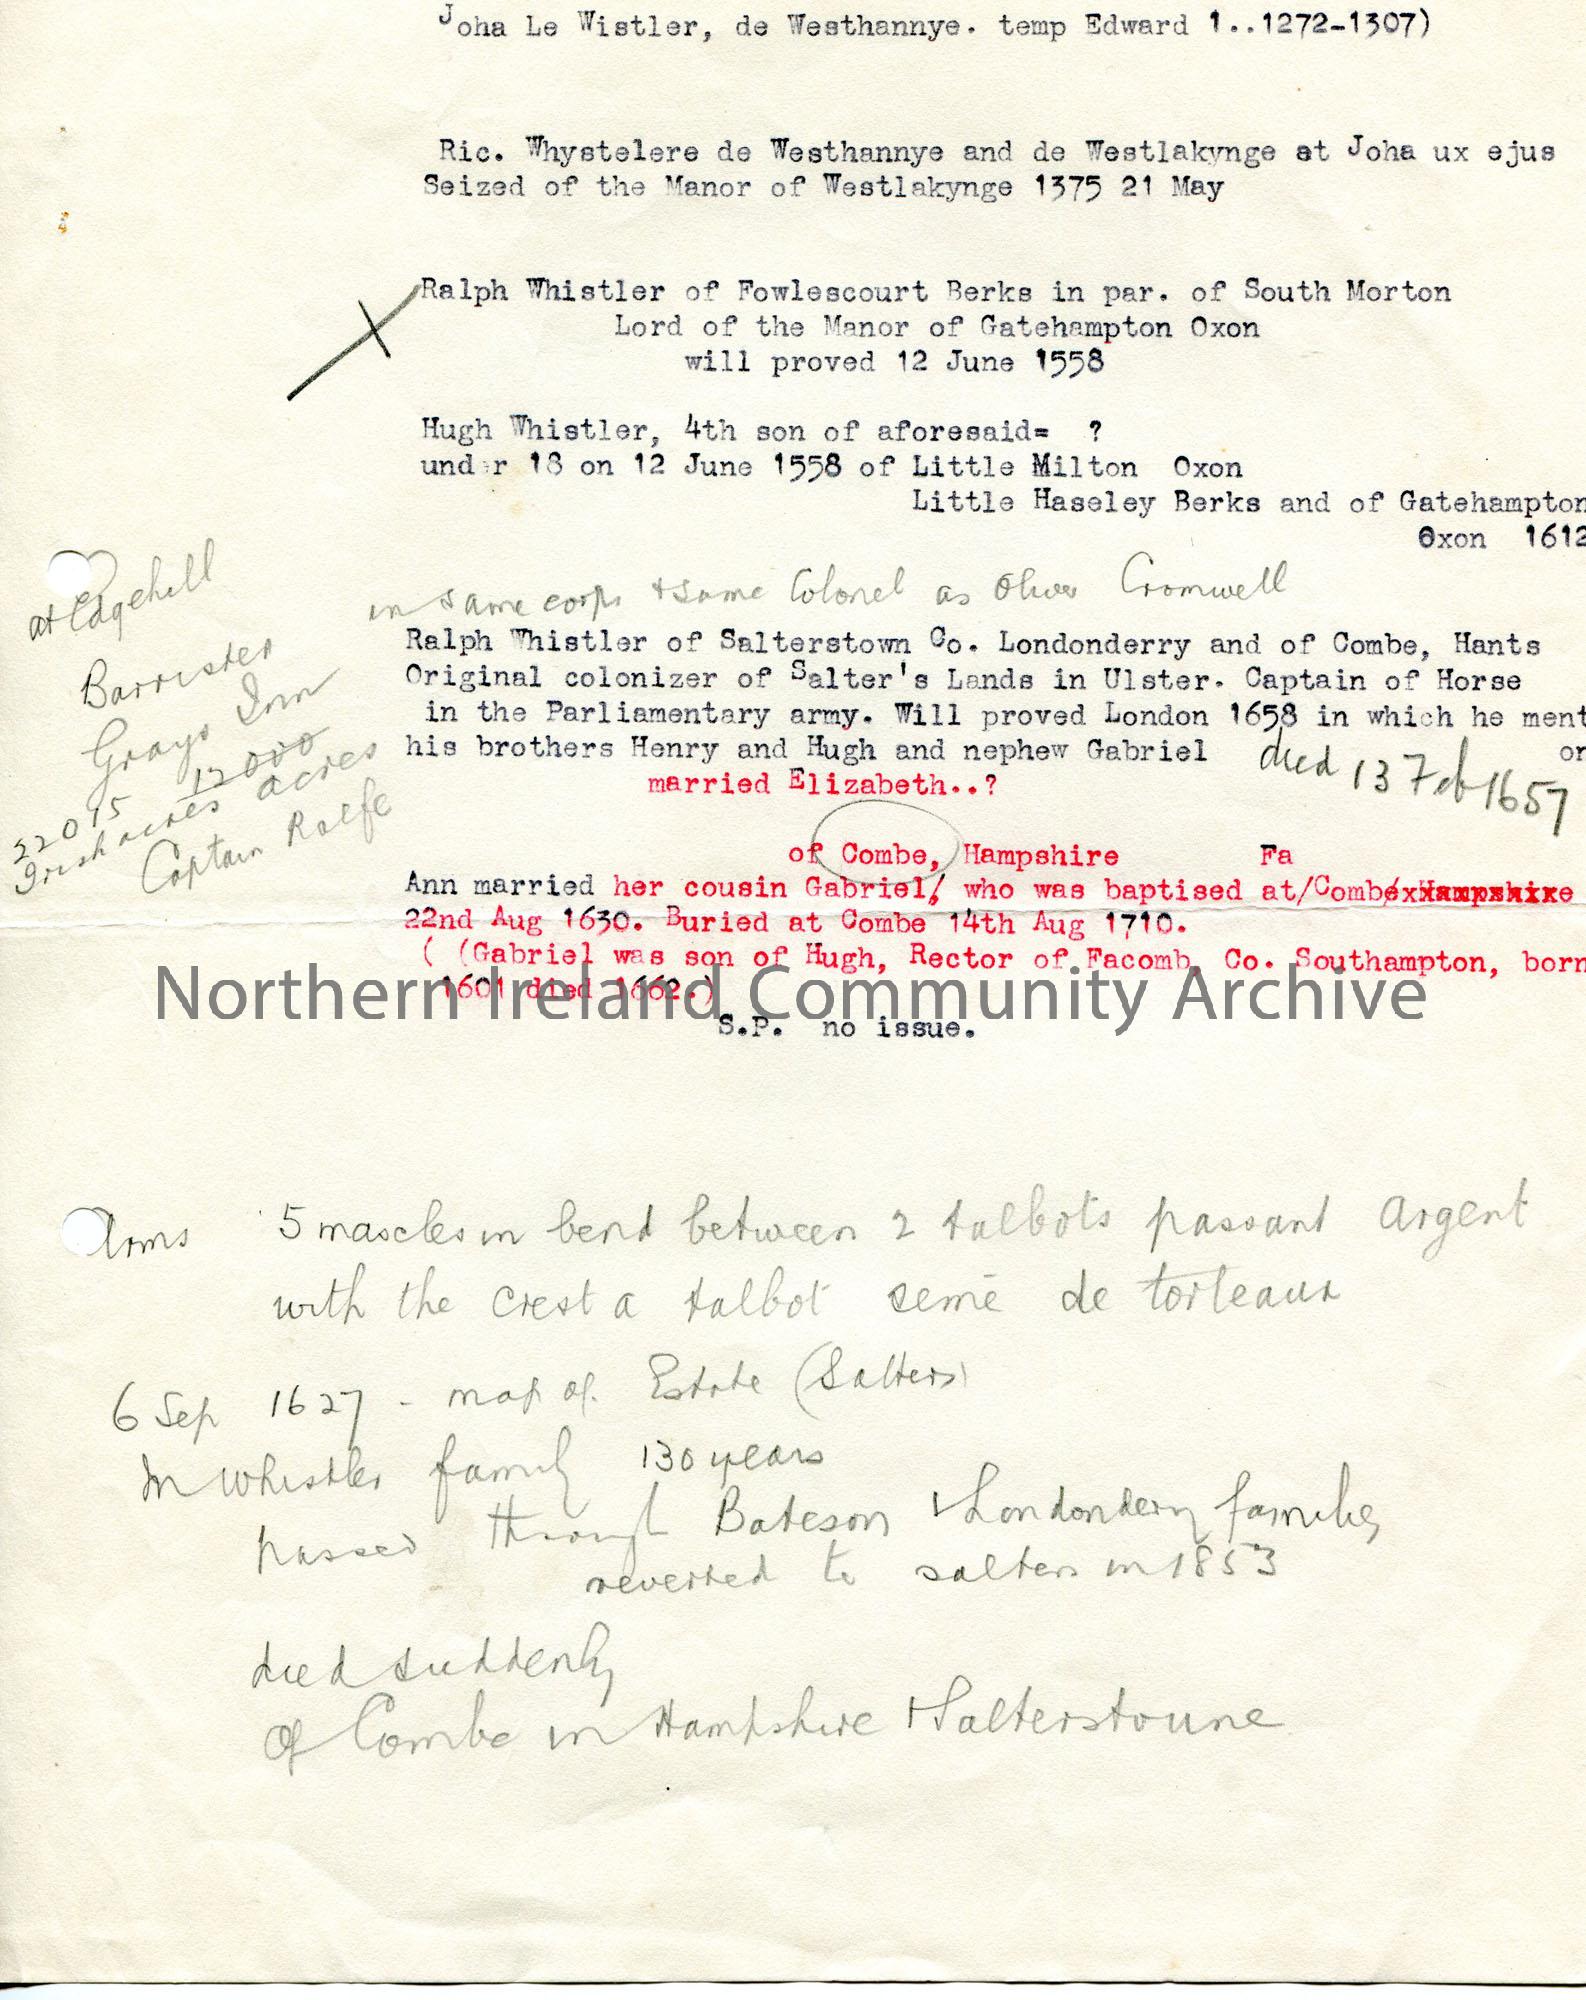 Joha Le Wistler, de Westhannye. temp Edward 1..1272-1307)
Ric. Whystelere de Westhannye and de Westlakynge et Joha ux ejus
Seized of the Manor of Westlakynge 1375 21 May
Ralph Whistler of Fowlescourt Berks in par. of South Morton
Lord of the Manor of Gatehampton Oxon
will proved 12 June 1558
Hugh Whistler, 4th son of aforesaid= ?
under 18 on 12 June 1558 of Little Milton Oxon
Little Haseley Berks and of Gatehampton
Oxon 1612
at Edgehill
in same corps & same Colonel as Oliver Cromwell
Barrister
Grays Inn
12000
22015 acres
Irish acres
Captain Rolfe
Ralph Whistler of Salterstown Co. Londonderry and of Combe, Hants
Original colonizer of Salter's Lands in Ulster. Captain of Horse
in the Parliamentary army. Will proved London 1658 in which he ment
his brothers Henry and Hugh and nephew Gabriel on
died 13 Feb 1657
married Elizabeth..?
of Combe, Hampshire Fa
Ann married her cousin Gabriel/ who was baptised at/Combe
22nd Aug 1630. Buried at Combe 14th Aug 1710.
( (Gabriel was son of Hugh, Rector of Facomb, Co. Southampton, born
1601 died 1662.)
Northern Ireland Community Archive
S.P. no issue.
Arms 5 mascles in bend between 2 talbots passant Argent
with the crest a talbot semé de torteaux
6 Sep 1627 - map of Estate (Salters)
In Whistler family 130 years
passed through Bateson & Londonderry families
reverted to salters in 1853
died suddenly
of Combe in Hampshire & Salterstoune